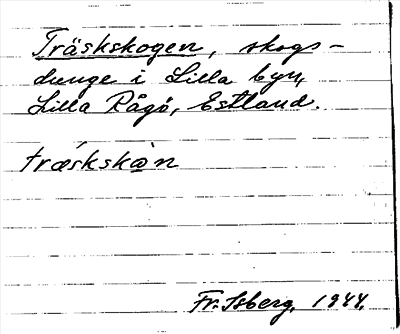 Träskskogen, skogs-
dunge i Lilla byn,
Lilla Rågö, Estland.
træ´skskò̱n
Fr. Isberg, 1944.